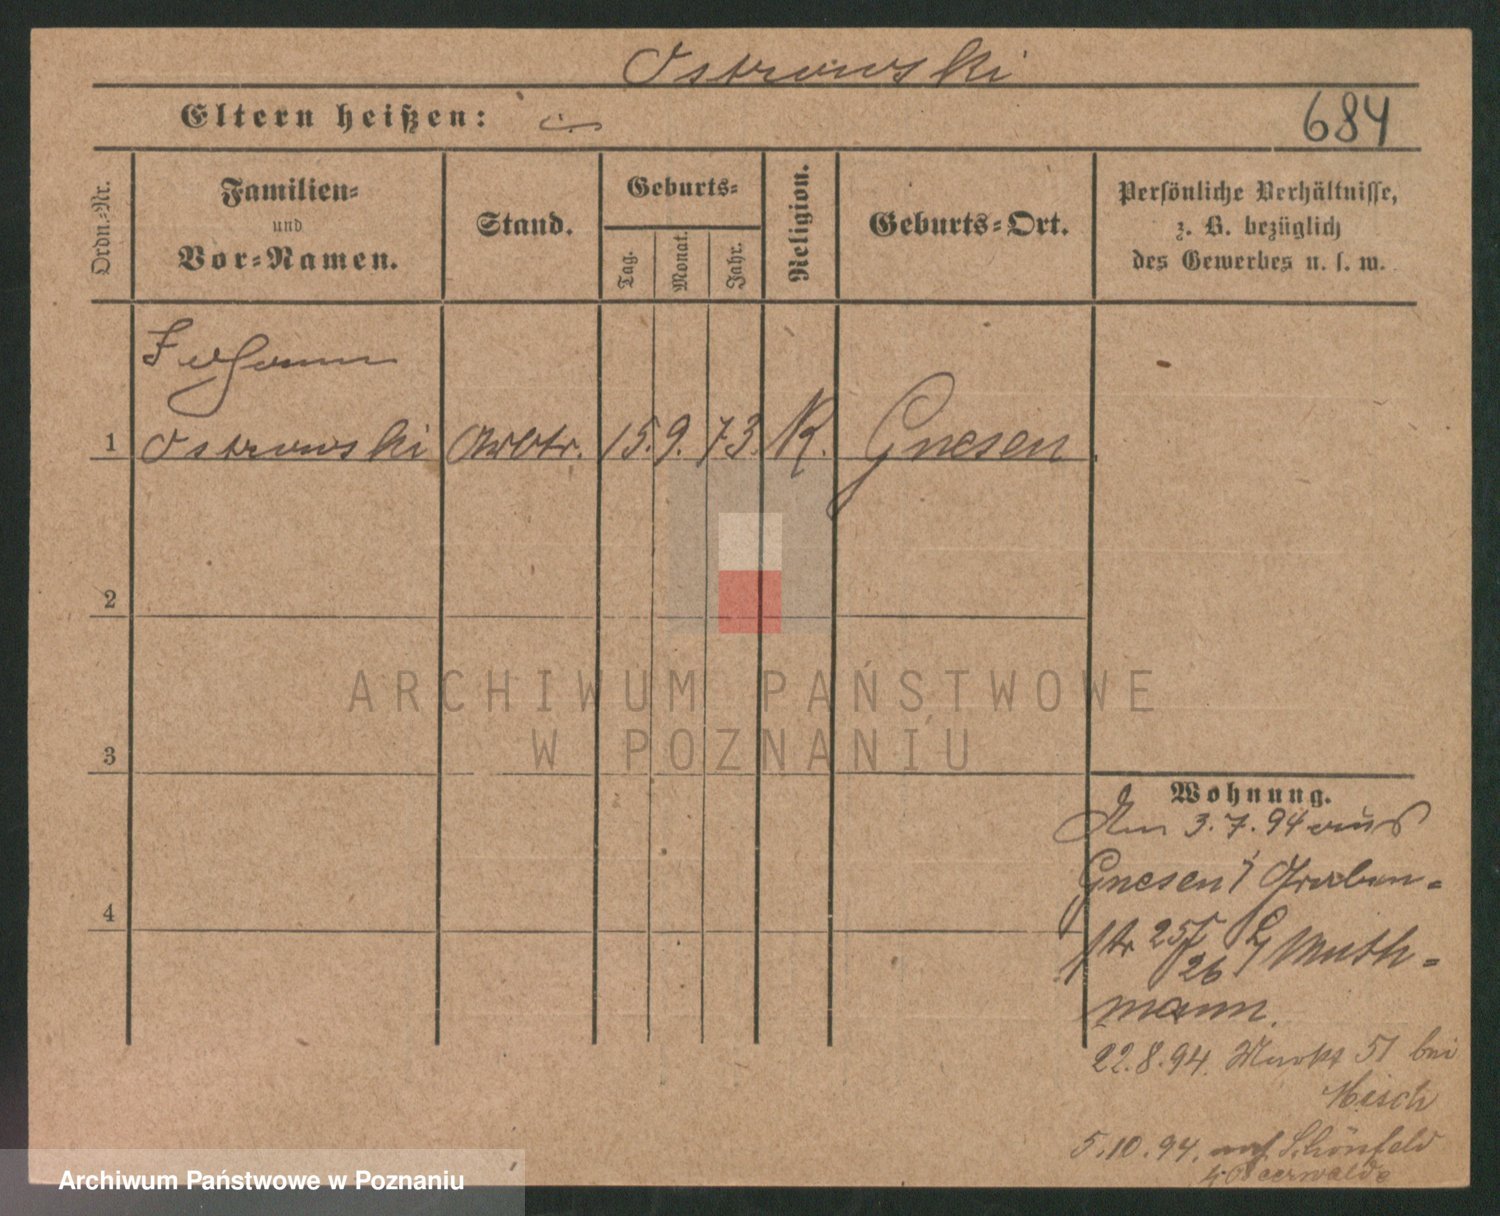 Ostrowski
Eltern heißen:
684
Ordn.-Nr.
Familien-
und
Vor-Namen.
Stand.
Geburts-
Tag.
Monat.
Jahr.
Religion.
Geburts-Ort.
Persönliche Verhältnisse,
z. B. bezüglich
des Gewerbes u. s. w.
Johann
1 Ostrowski Arbtr. 15. 9. 73. K. Gnesen
2
3
4
ARCHIWUM PAŃSTWOWE
W POZNANIU
Wohnung.
Am 3.7.94 aus
Gnesen Graben-
str 25/
26 Muth-
mann.
22.8.94. Markt 51 bei
Hisch
5.10.94. auf Schönfeld
Beerwalde
Archiwum Państwowe w Poznaniu